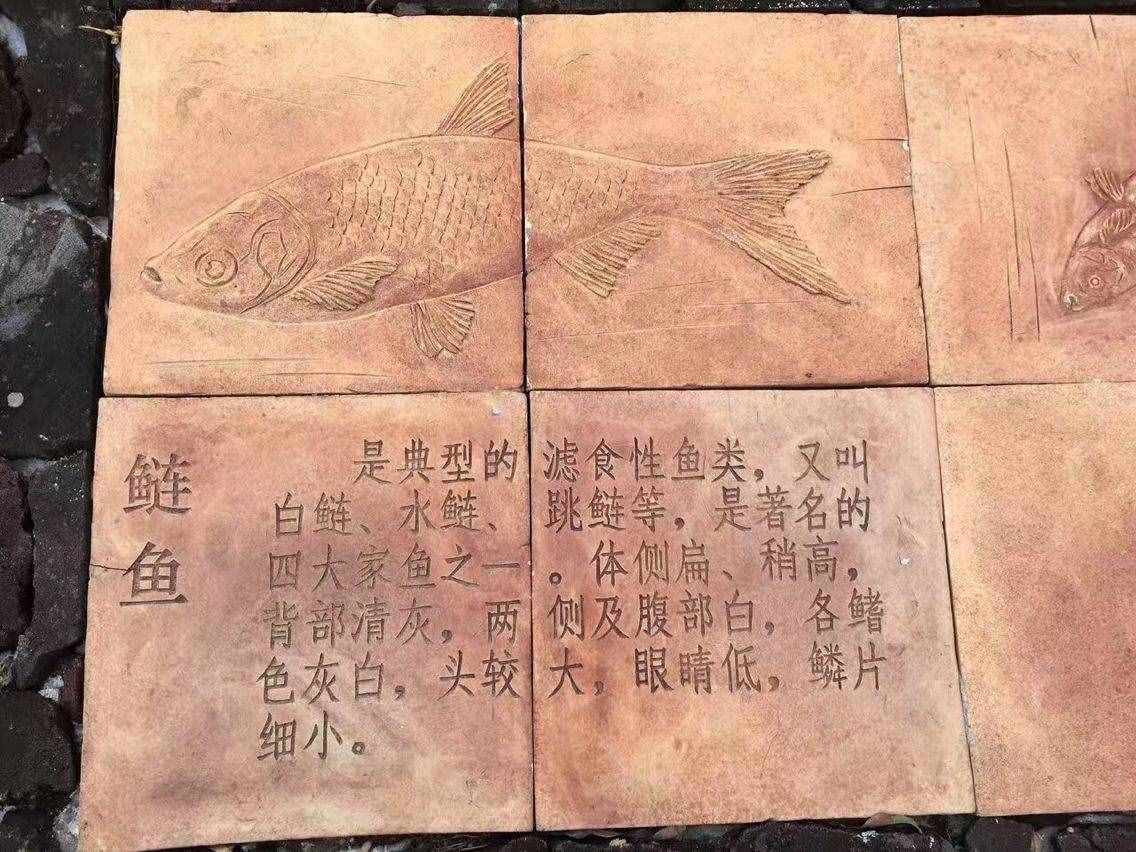 鲢鱼
是典型的滤食性鱼类，又叫
白鲢、水鲢、跳鲢等，是著名的
四大家鱼之一。体侧扁、稍高，
背部清灰，两侧及腹部白，各鳍
色灰白，头较大，眼睛低，鳞片
细小。